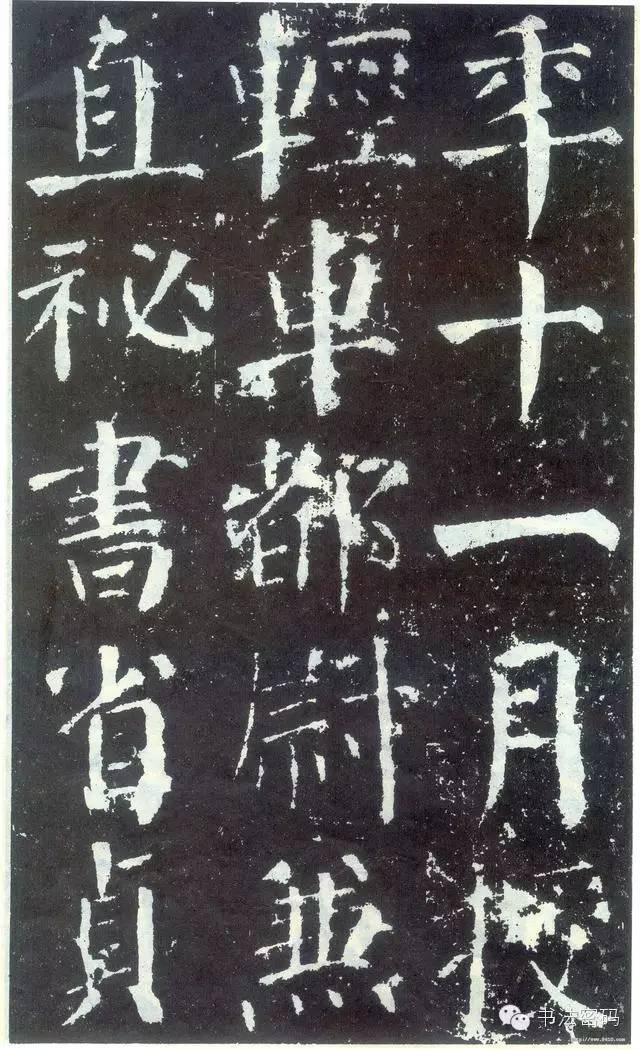 年十一月授
輕車都尉兼
直祕書省貞
书法密码
http://www.9610.com